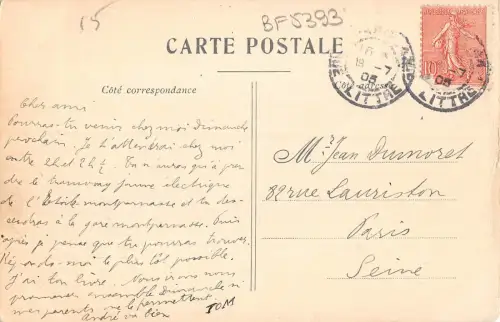 15
BF5393
CARTE POSTALE
Côté correspondance
PARIS
18 -7
05
LITTRÉ
10
Cher ami
Pourras-tu venir chez moi dimanche
prochain. Je t'attendrai chez moi
entre 2h et 2h ½. Tu n'auras qu'à pren
dre le tramway jaune électrique
de l'Etoile montparnasse et tu des-
cendras à la gare montparnasse. Puis
après je pense que tu pourras trouver.
Réponds-moi le plus tôt possible.
J'ai ton livre. Nous irons nous
promener ensemble dimanche si
mes parents me le permettent
André va bien
TOM
Mr Jean Dumoret
82 rue Lauriston
Paris
Seine